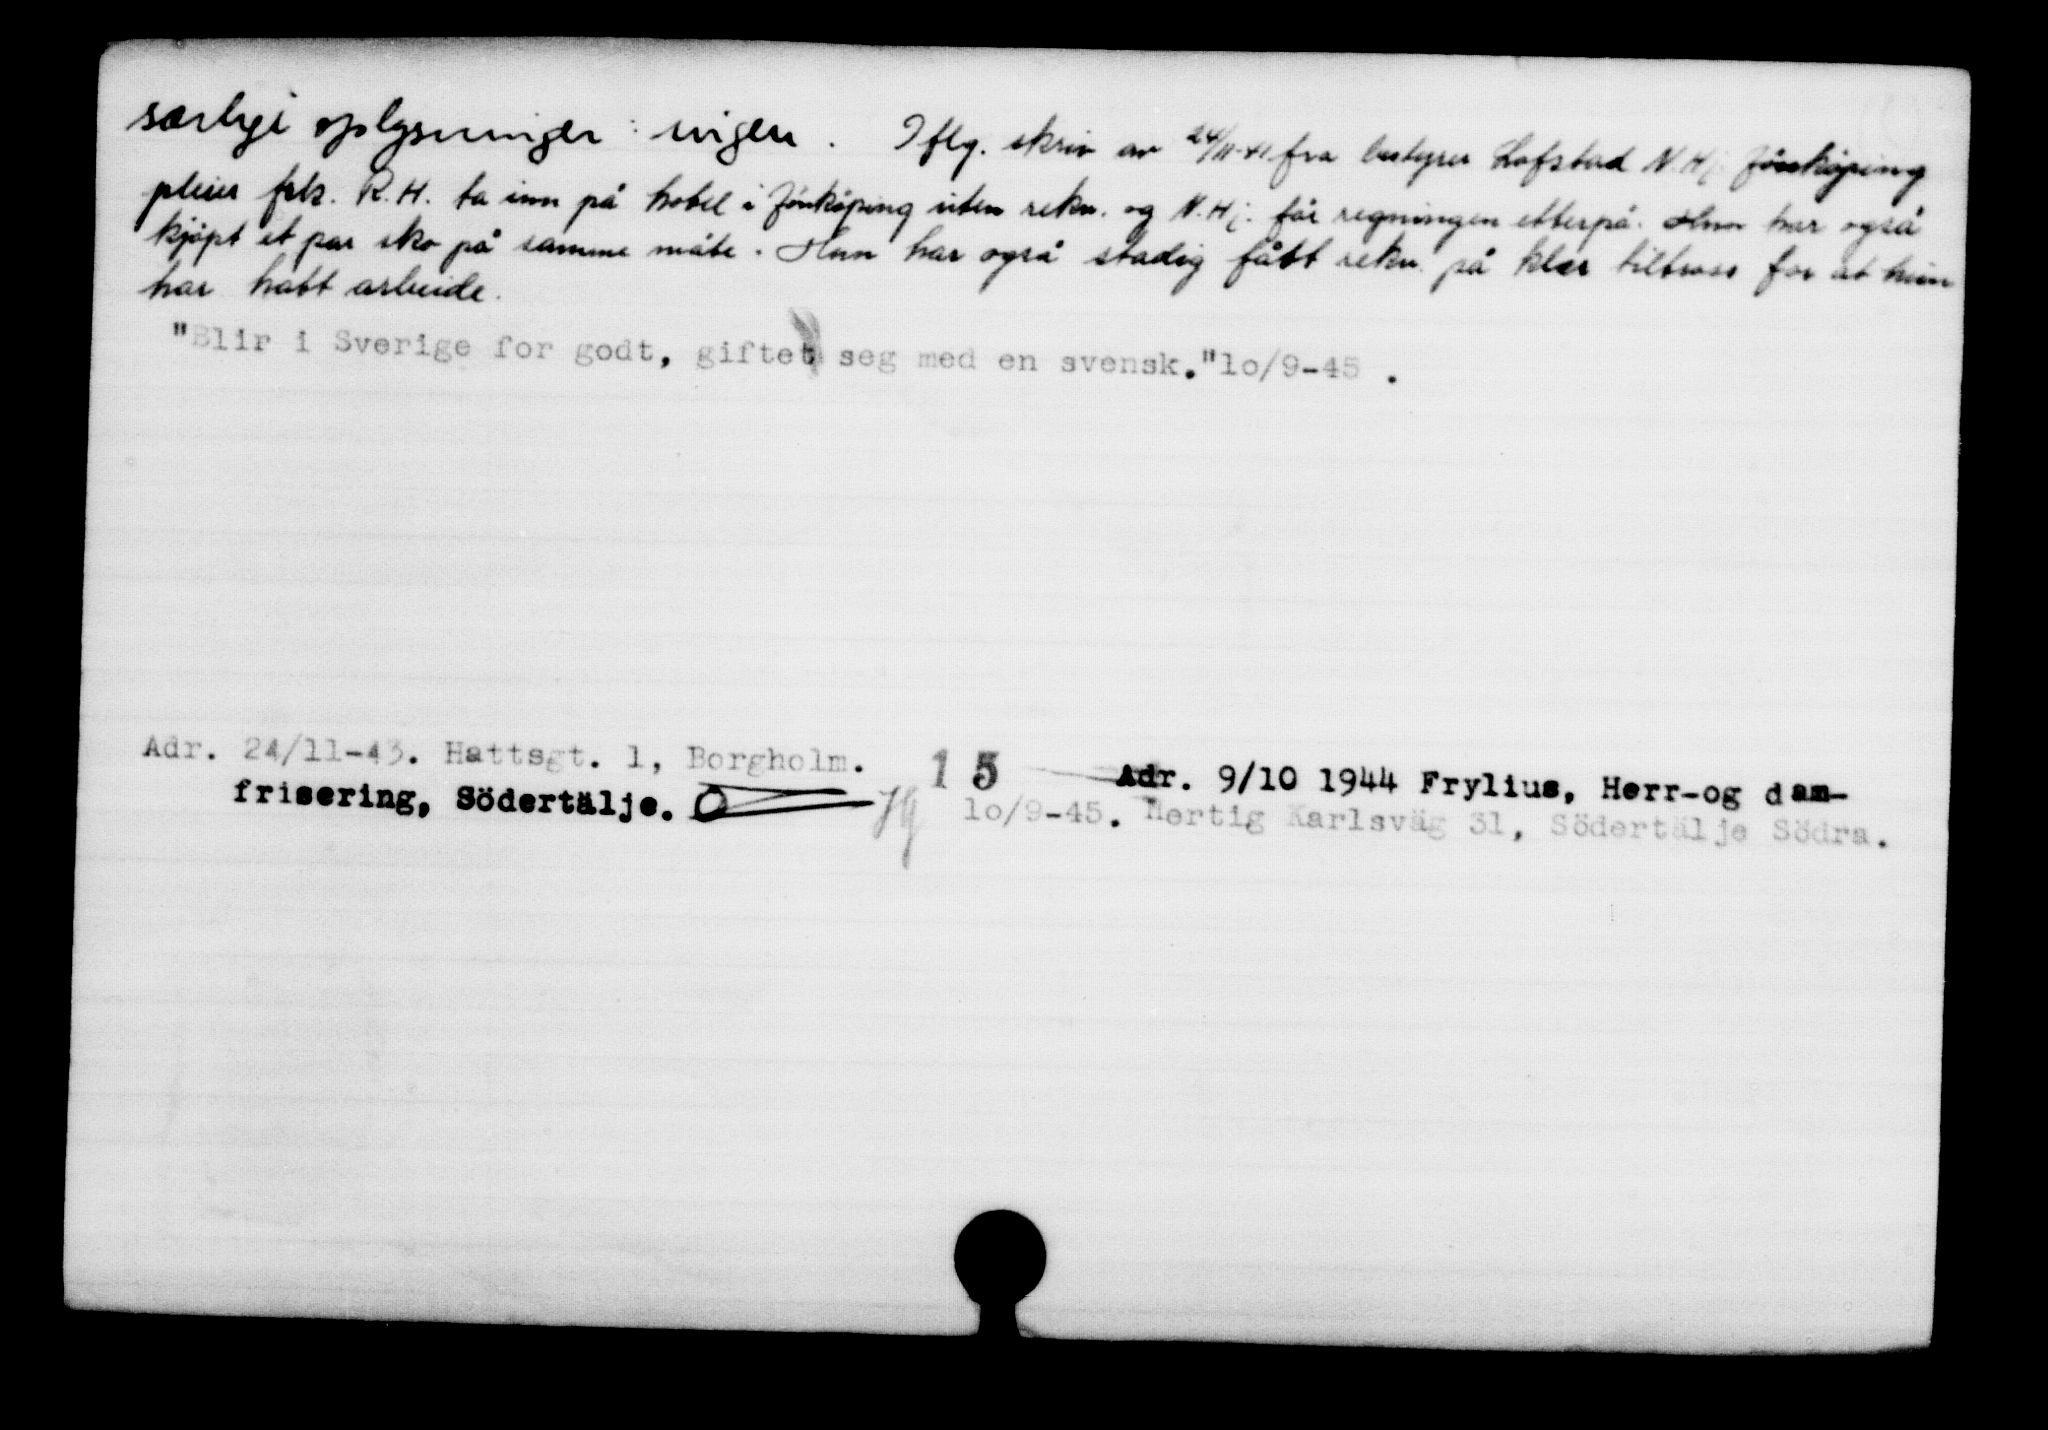 særlige oplysninger : ingen. Iflg. skriv av 24/11-41 fra bestyrer Lofstad N.Hj. Jönköping
pleier frk. R.H. ta inn på hotel i Jönköping uten rekv. og N.Hj. får regningen etterpå. Hun har også
kjöpt et par sko på samme måte. Hun har også stadig fått rekv. på klær tiltross for at hun
har hatt arbeide.
"Blir i Sverige for godt, giftet seg med en svensk."lo/9-45 .
Adr. 24/11-43. Hattsgt. 1, Borgholm. 15 Adr. 9/10 1944 Frylius, Herr-og dam-
frisering, Södertälje. lo/9-45. Hertig Karlsväg 31, Södertälje Södra.